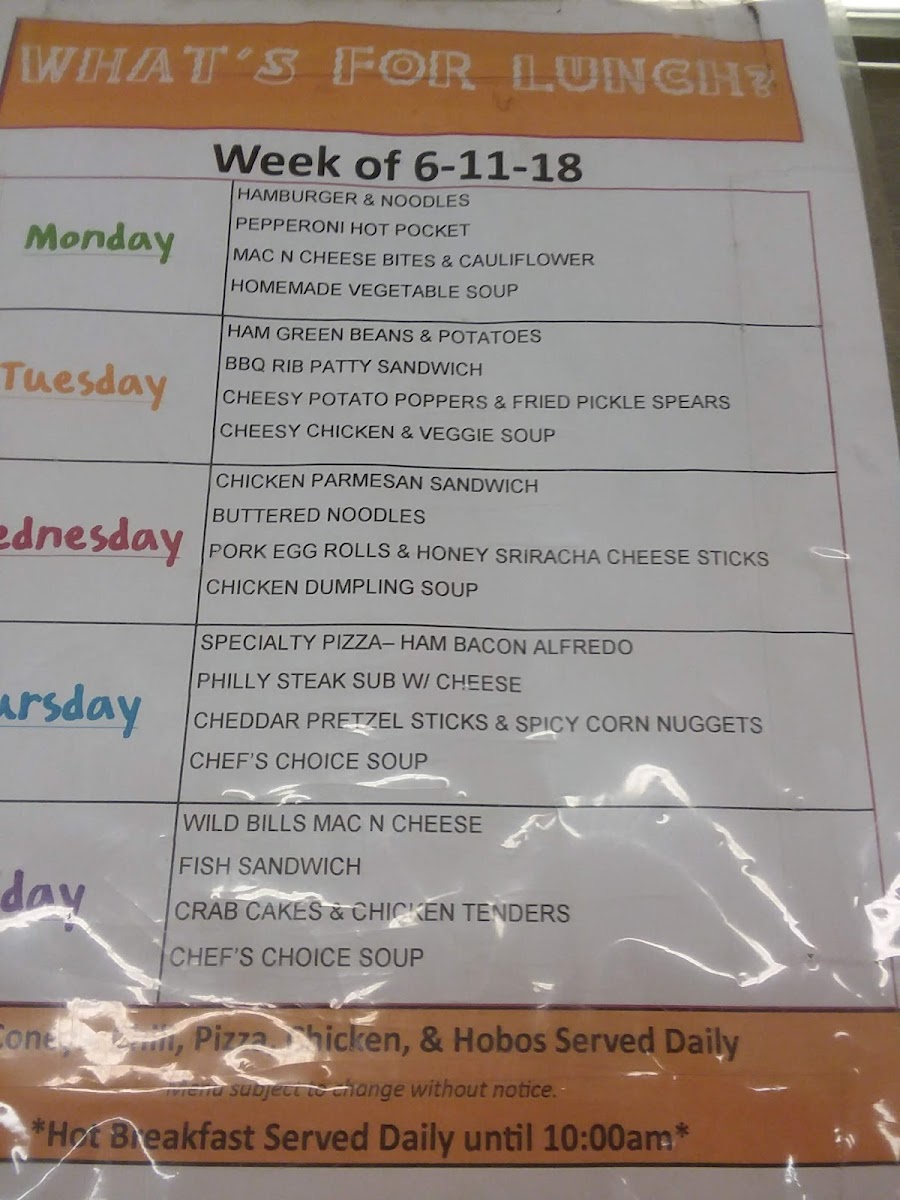 WHAT'S FOR LUNCH?
Week of 6-11-18
Monday
HAMBURGER & NOODLES
PEPPERONI HOT POCKET
MAC N CHEESE BITES & CAULIFLOWER
HOMEMADE VEGETABLE SOUP
Tuesday
HAM GREEN BEANS & POTATOES
BBQ RIB PATTY SANDWICH
CHEESY POTATO POPPERS & FRIED PICKLE SPEARS
CHEESY CHICKEN & VEGGIE SOUP
ednesday
CHICKEN PARMESAN SANDWICH
BUTTERED NOODLES
PORK EGG ROLLS & HONEY SRIRACHA CHEESE STICKS
CHICKEN DUMPLING SOUP
ursday
SPECIALTY PIZZA– HAM BACON ALFREDO
PHILLY STEAK SUB W/ CHEESE
CHEDDAR PRETZEL STICKS & SPICY CORN NUGGETS
CHEF'S CHOICE SOUP
day
WILD BILLS MAC N CHEESE
FISH SANDWICH
CRAB CAKES & CHICKEN TENDERS
CHEF'S CHOICE SOUP
Pizza, Chicken, & Hobos Served Daily
Menu subject to change without notice.
*Hot Breakfast Served Daily until 10:00am*